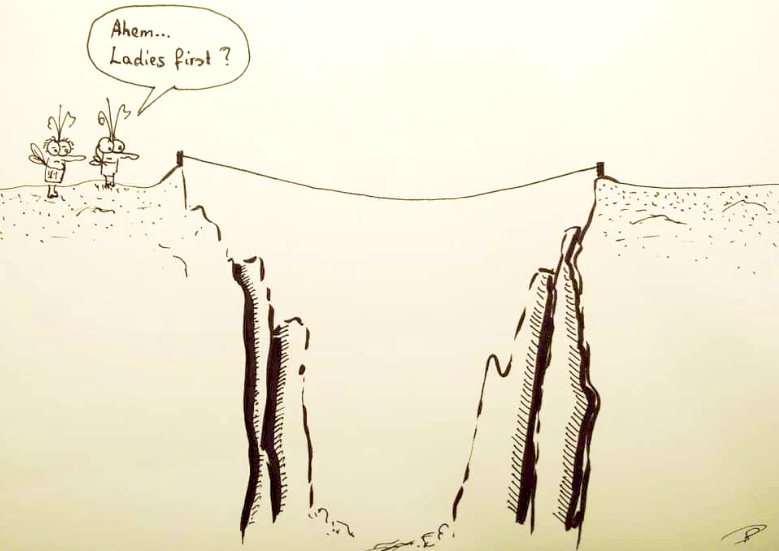 Ahem...
Ladies first ?